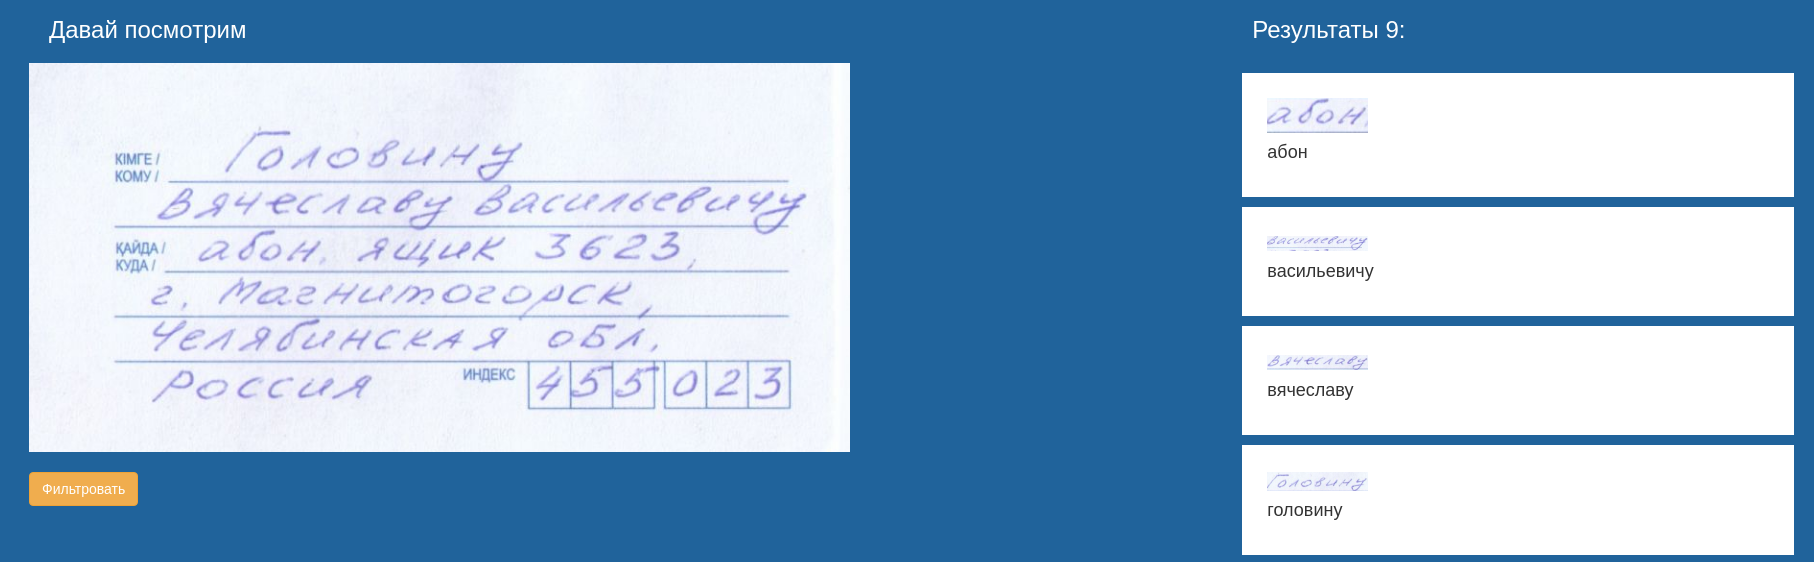 Давай посмотрим
КІМГЕ /
КОМУ /
Головину
Вячеславу Васильевичу
ҚАЙДА /
КУДА /
абон. ящик 3623,
г. Магнитогорск,
Челябинская обл.
Россия
ИНДЕКС
455023
Фильтровать
Результаты 9:
абон.
абон
Васильевичу
васильевичу
Вячеславу
вячеславу
Головину
головину